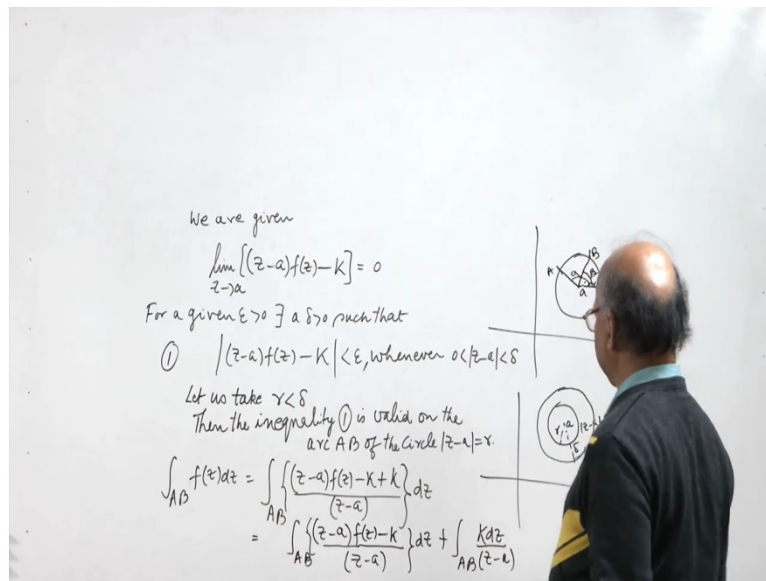 We are given
lim [(z-a)f(z)-K] = 0
z→a
For a given ε>0 ∃ a δ>0 such that
① |(z-a)f(z)-K| < ε, whenever 0<|z-a|<δ
Let us take r<δ
Then the inequality ① is valid on the
arc AB of the Circle |z-a|=r.
∫_AB f(z)dz = ∫_AB {((z-a)f(z)-K+K)/(z-a)} dz
= ∫_AB {((z-a)f(z)-K)/(z-a)} dz + ∫_AB Kdz/(z-a)
A B
a
r a
δ